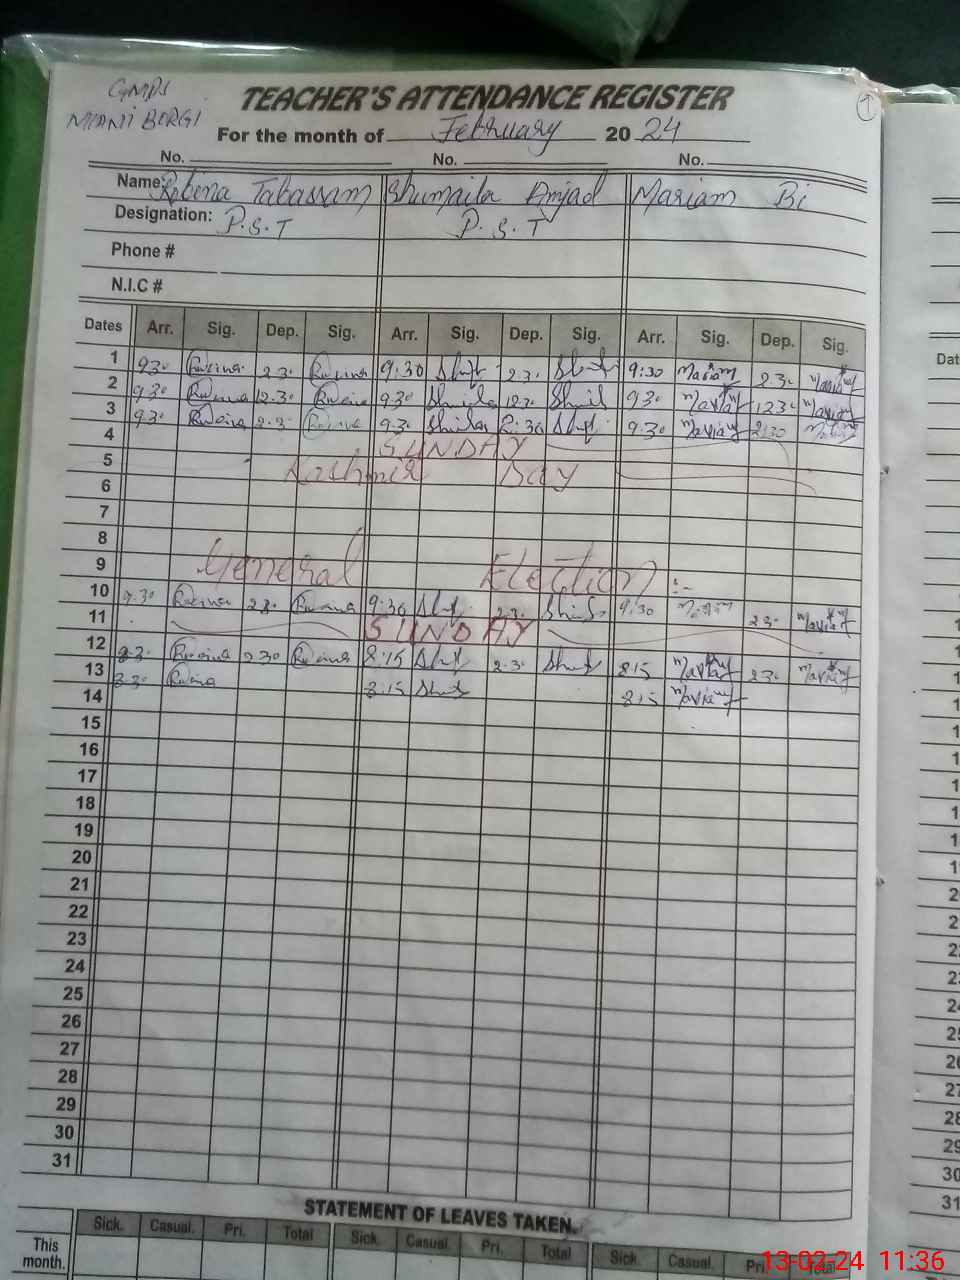 GMPS
MIANI BORGI
TEACHER'S ATTENDANCE REGISTER
For the month of February 20 24
No. No. No.
Name: Robina Tabassam Shumaila Amjad Mariam Bi
Designation: P.S.T P.S.T
Phone #
N.I.C #
Dates Arr. Sig. Dep. Sig. Arr. Sig. Dep. Sig. Arr. Sig. Dep. Sig.
1 9.30 2.30 9:30 2.30 9:30 Mariam 2.30
2 9.30 12.30 9.30 12.30 9.30 12.30
3 9.30 2.30 9.30 2:30 9.30 2:30
4 SUNDAY
5 Kashmir Day
6
7
8
9 General Election :-
10 9.30 2.30 9:30 2.30 9:30 2.30
11 SUNDAY
12 8.30 2.30 8:15 2.30 8:15 2.30
13 8.30 8:15 8:15
14
15
16
17
18
19
20
21
22
23
24
25
26
27
28
29
30
31
STATEMENT OF LEAVES TAKEN
Sick. Casual. Pri. Total Sick. Casual. Pri. Total Sick. Casual. Pri. Total
This month.
13-02-24 11:36